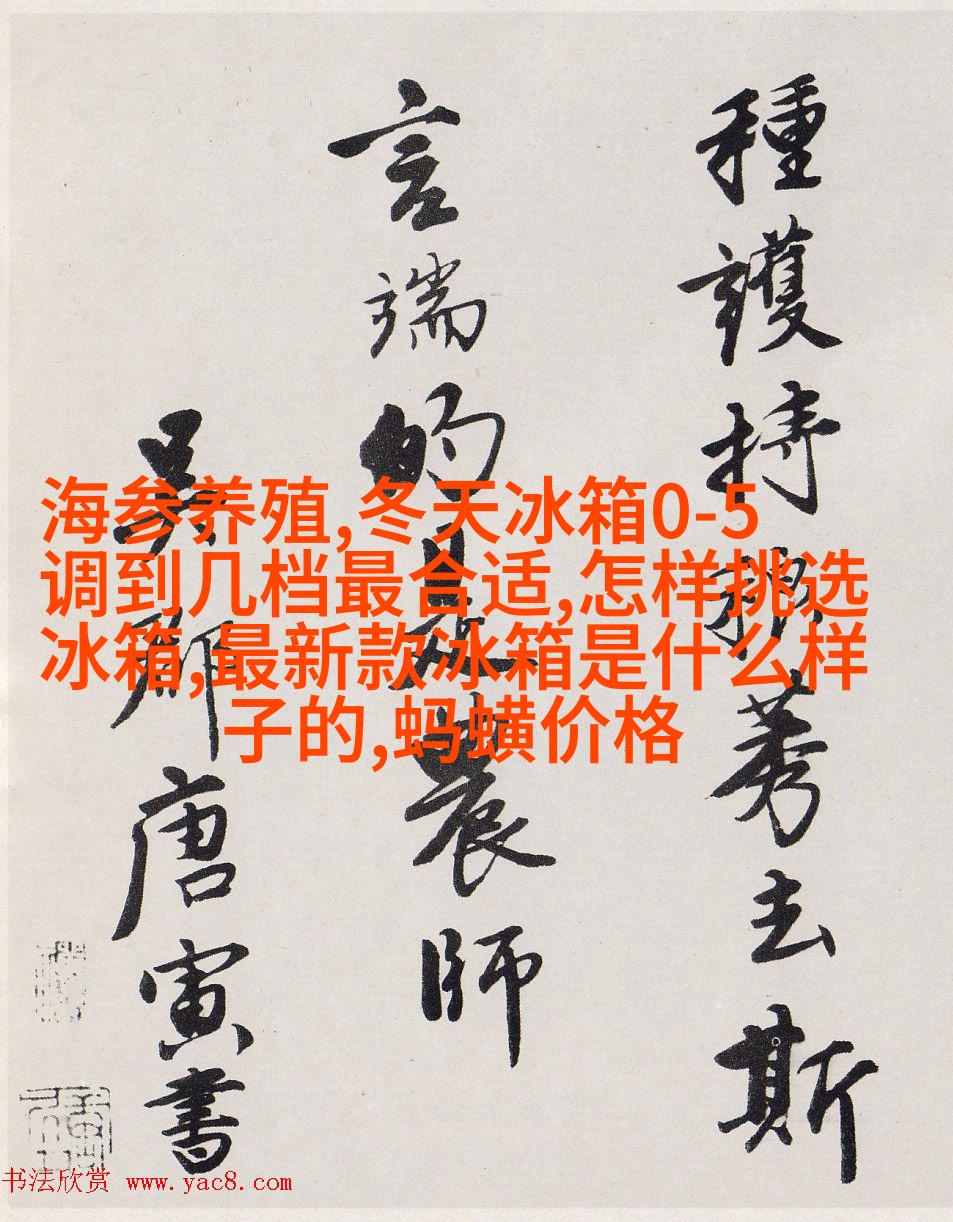 種護持稂莠去斯
言端的是農師
吳郡唐寅書
海参养殖,冬天冰箱0-5
调到几档最合适,怎样挑选
冰箱,最新款冰箱是什么样
子的,蚂蟥价格
书法欣赏 www.yac8.com